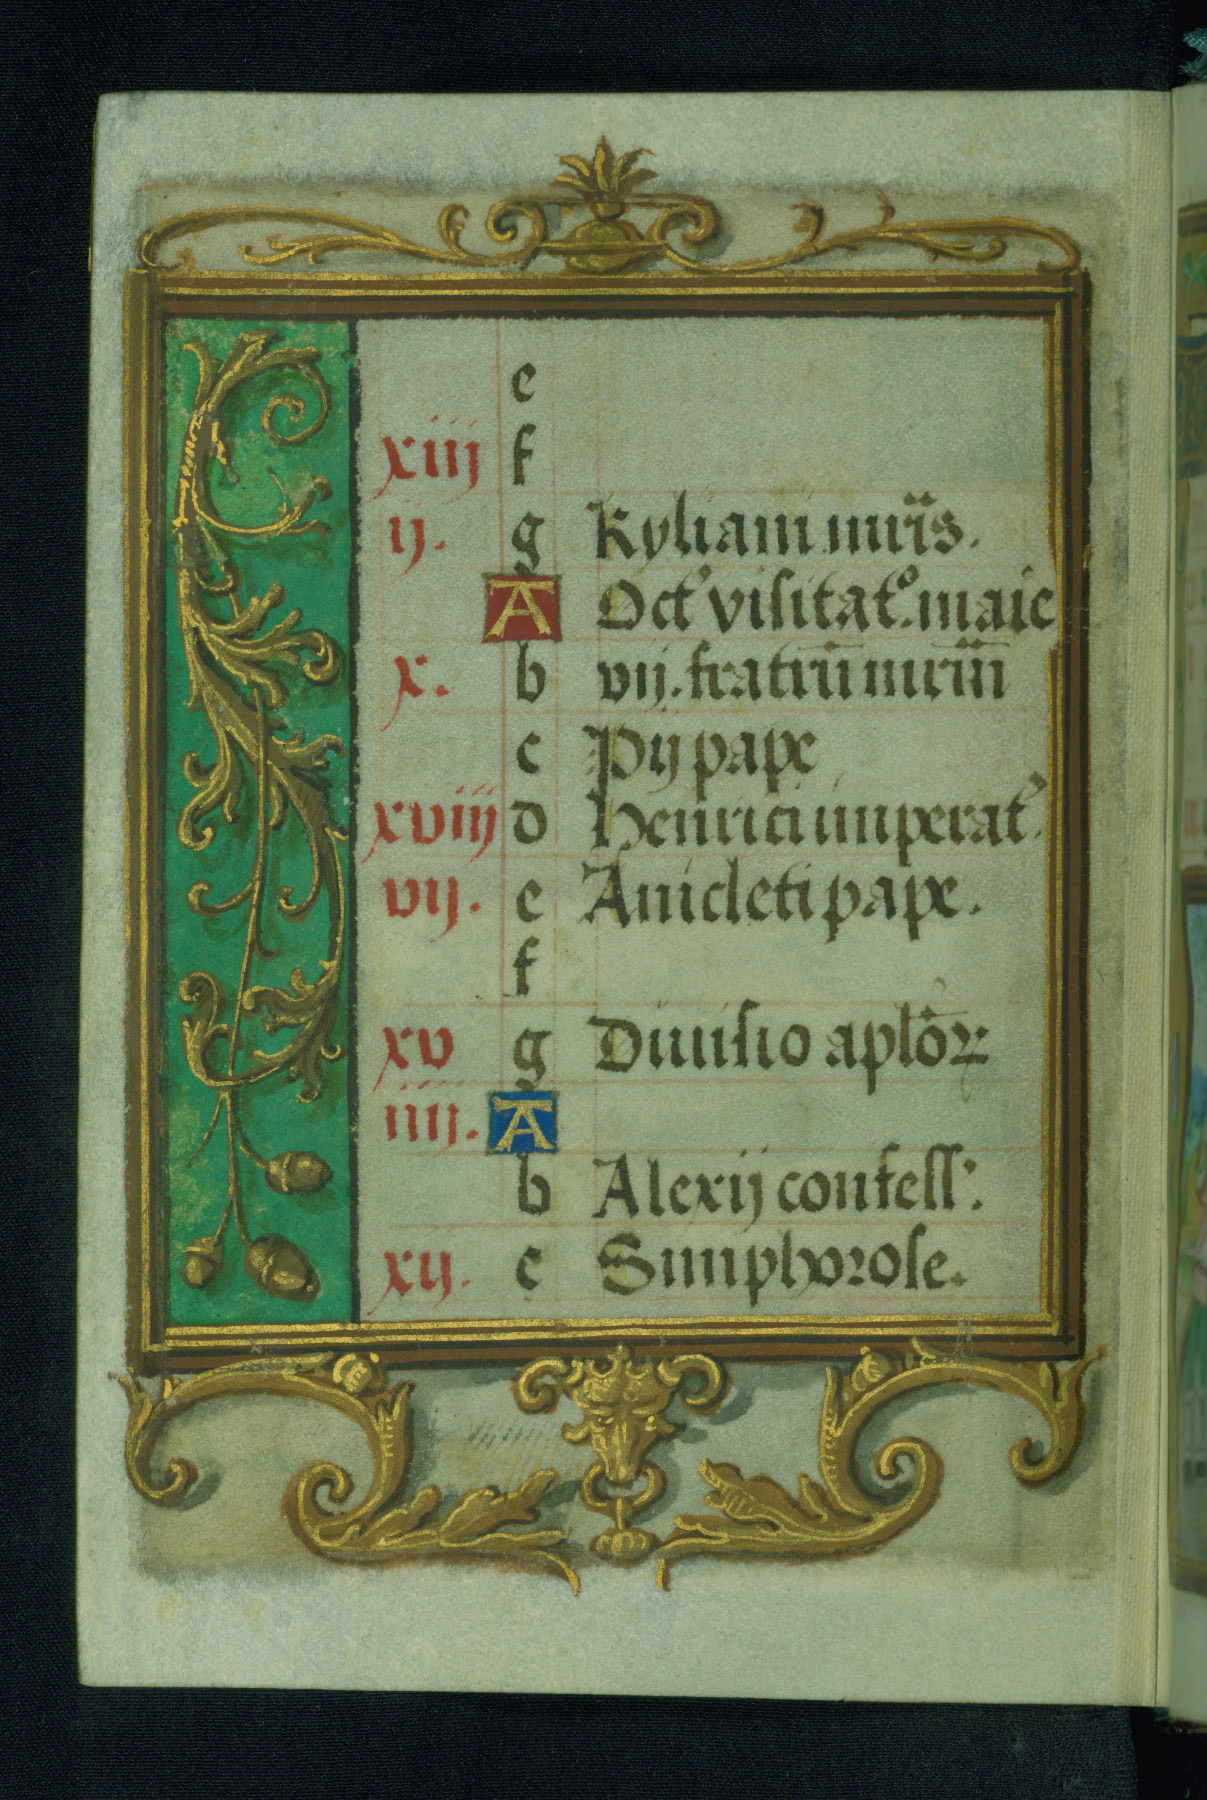 e
xiij f
ij. g Kyliani mr̃is.
A Oct' visitat'. marie
x. b vij. fratrũ mr̃m̃
c Pij pape
xviij d Henrici imperat'.
vij. e Anicleti pape.
f
xv g Diuisio aplõꝝ
iiij. A
b Alexij confess'.
xij. c Simphorose.